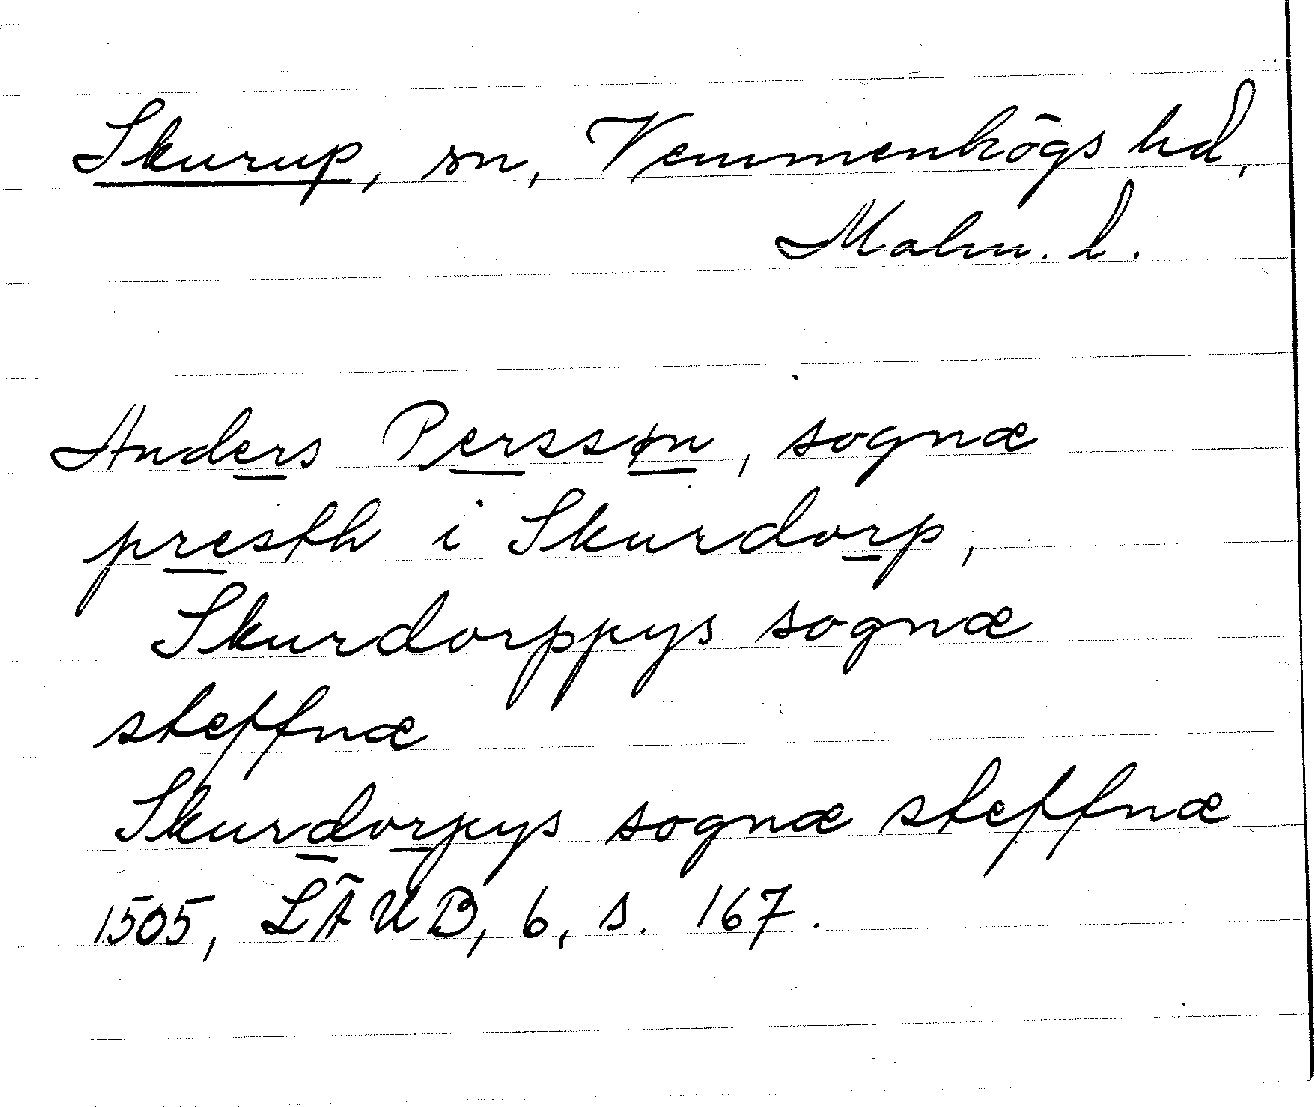 Skurup, sn, Vemmenhögs hd,
Malm. l.
Anders Perssøn, sognæ
presth i Skurdorp,
Skurdorppys sognæ
steffnæ
Skurdorpys sognæ steffnæ
1505, LÄUB, 6, s. 167.